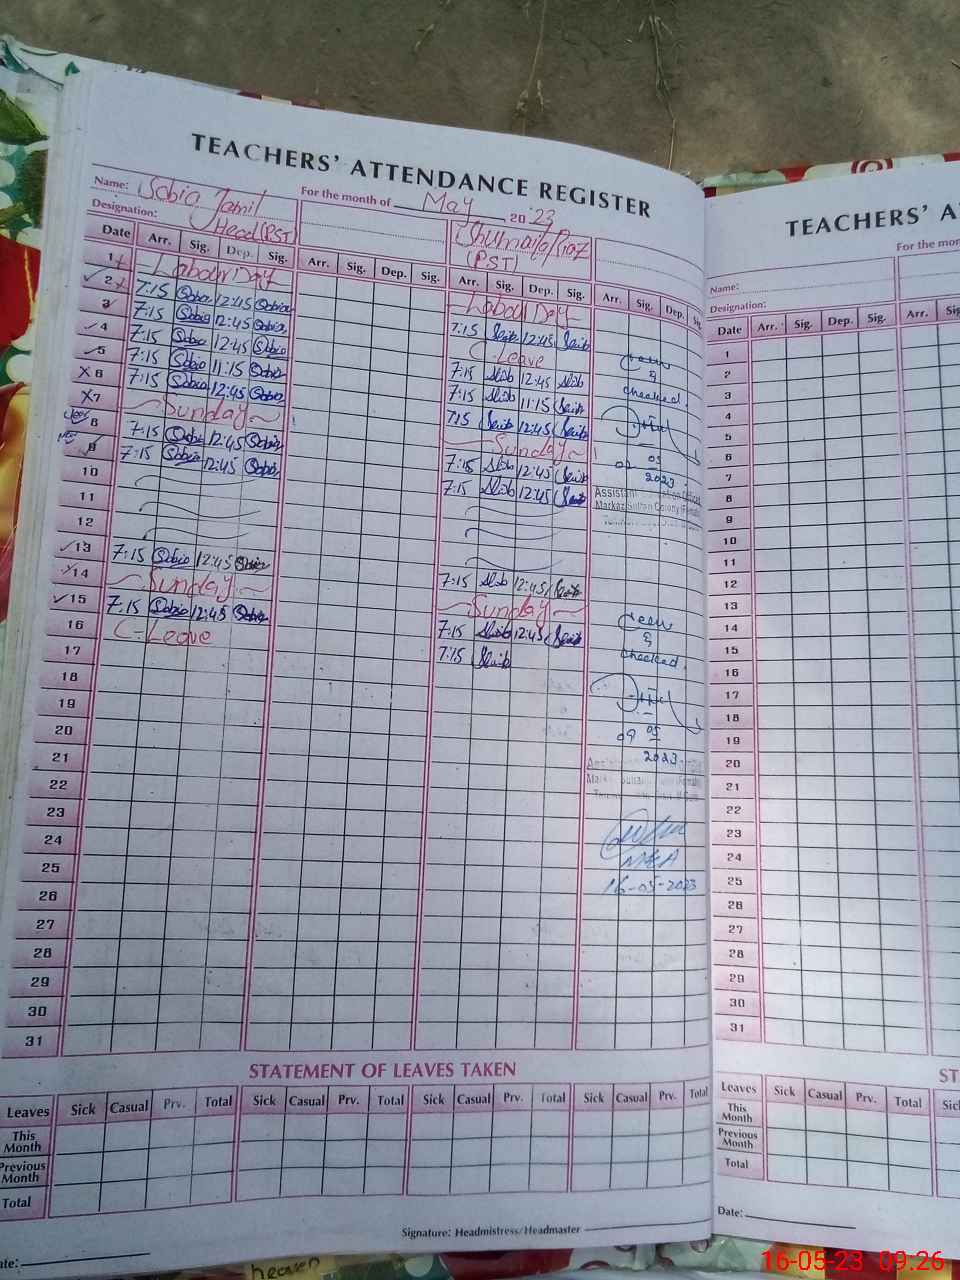 TEACHERS' ATTENDANCE REGISTER
Name: Sobia Jamil For the month of May 2023
Designation: Head (PST) Shumaila Riaz (PST)
Date Arr. Sig. Dep. Sig. Arr. Sig. Dep. Sig. Arr. Sig. Dep. Sig. Arr. Sig. Dep. Sig.
1 Labour Day Labour Day
2 7:15 Sobia 12:45 Sobia 7:15 12:45
3 7:15 Sobia 12:45 Sobia C-Leave
4 7:15 Sobia 12:45 Sobia 7:15 12:45
5 7:15 Sobia 11:15 Sobia 7:15 11:15
6 7:15 Sobia 12:45 Sobia 7:15 12:45
7 Sunday Sunday
8 7:15 Sobia 12:45 Sobia 7:15 12:45
9 7:15 Sobia 12:45 Sobia 7:15 12:45
10
11
12
13 7:15 Sobia 12:45 Sobia 7:15 12:45
14 Sunday Sunday
15 7:15 Sobia 12:45 Sobia 7:15 12:45
16 C-Leave 7:15
17
18
19
20
21
22
23
24
25
26
27
28
29
30
31
Seen
&
checked.
02 05
2023.
Assistant Education Officer
Markaz Sultan Colony (Female)
Seen
&
checked.
09 05
2023.
MEA
16-05-2023
STATEMENT OF LEAVES TAKEN
Leaves Sick Casual Prv. Total Sick Casual Prv. Total Sick Casual Prv. Total Sick Casual Prv. Total
This Month
Previous Month
Total
Signature: Headmistress/Headmaster
ate:
heaven
TEACHERS' A
For the mon
Name:
Designation:
Date Arr. Sig. Dep. Sig. Arr. Sig
1
2
3
4
5
6
7
8
9
10
11
12
13
14
15
16
17
18
19
20
21
22
23
24
25
26
27
28
29
30
31
ST
Leaves Sick Casual Prv. Total Sic
This Month
Previous Month
Total
Date:
16-05-23 09:26